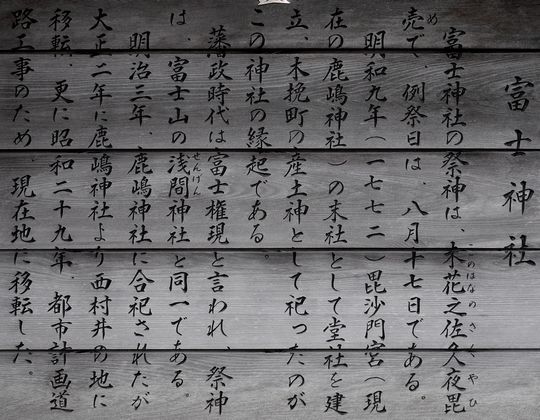 富士神社
富士神社の祭神は、木花之佐久夜毘
このはなのさくやひ
売で、例祭日は、八月十七日である。
め
明和九年(一七七二)毘沙門宮(現
在の鹿嶋神社)の末社として堂社を建
立、木挽町の産土神として祀ったのが
この神社の縁起である。
藩政時代は富士権現と言われ、祭神
は、富士山の浅間神社と同一である。
せんげん
明治三年、鹿嶋神社に合祀されたが
大正二年に鹿嶋神社より西村井の地に
移転、更に昭和二十九年、都市計画道
路工事のため、現在地に移転した。